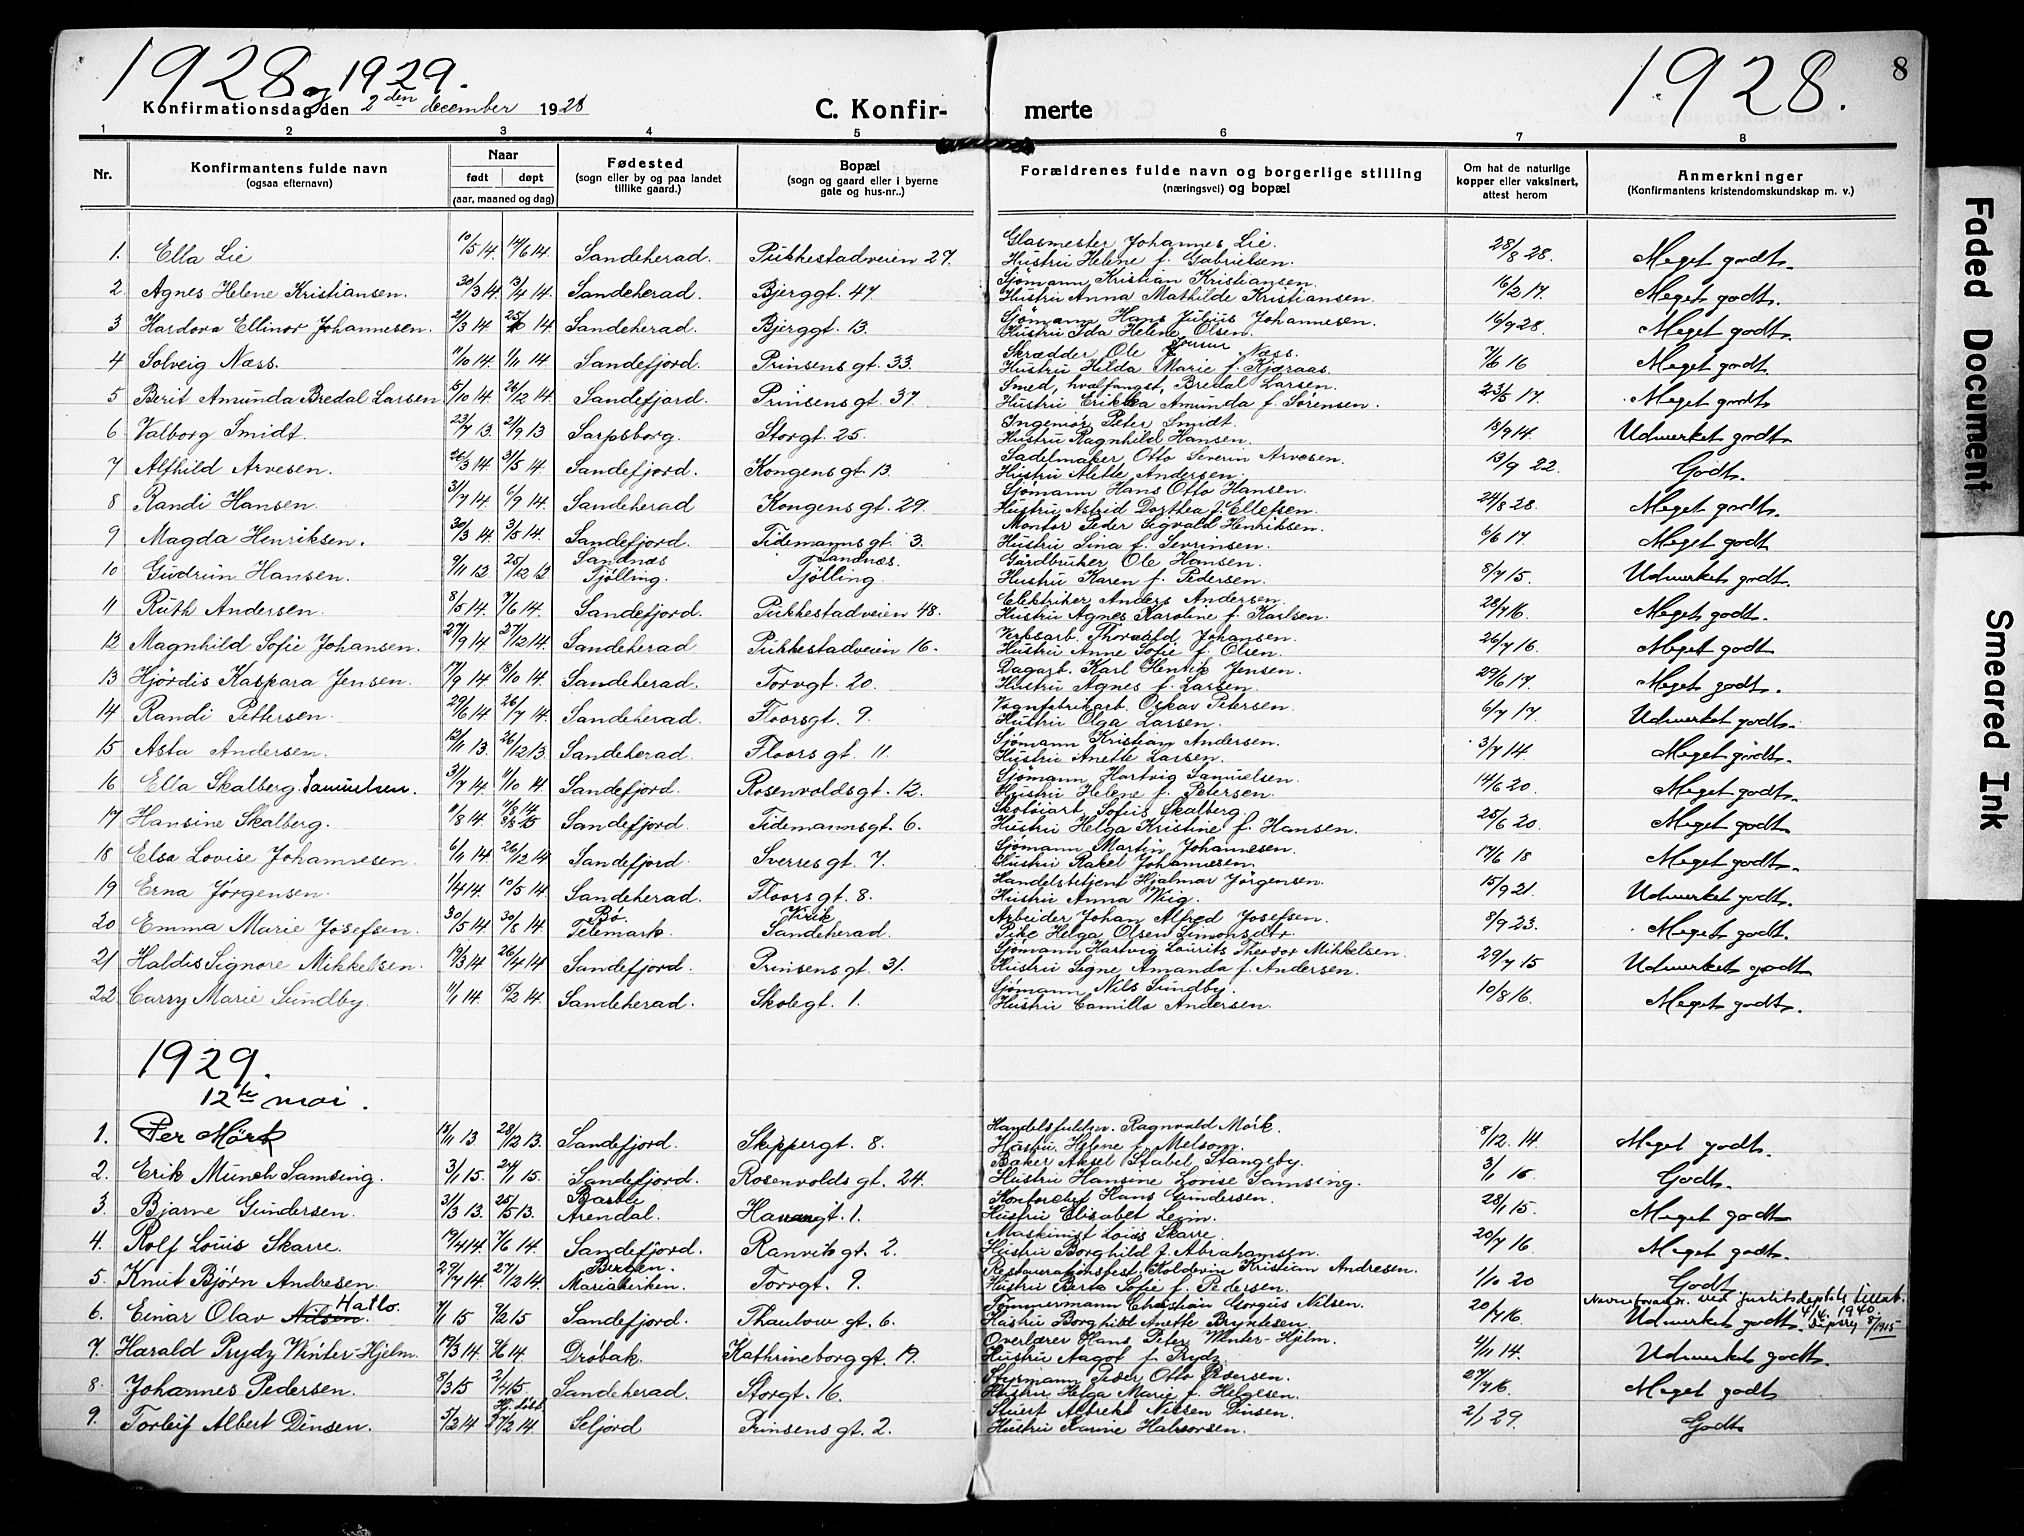 1928 og 1929.
1928.
8
Konfirmationsdag den 2den december 1928
C. Konfir-
merte
1 2 3 4 5 6 7 8
Nr.
Konfirmantens fulde navn
(ogsaa efternavn)
Naar
født døpt
(aar, maaned og dag)
Fødested
(sogn eller by og paa landet
tillike gaard.)
Bopæl
(sogn og gaard eller i byerne
gate og hus-nr..)
Forældrenes fulde navn og borgerlige stilling
(næringsvei) og bopæl
Om hat de naturlige
kopper eller vaksinert,
attest herom
Anmerkninger
(Konfirmantens kristendomskundskap m. v.)
1. Ella Lie 10/5 14. 14/6 14. Sandeherad. Pukkestadveien 27. Glasmester Johannes Lie. 28/8 28. Meget godt.
Hustru Helene f. Gabrielsen.
2 Agnes Helene Kristiansen. 30/3 14. 13/4 14. Sandeherad. Bjerggt. 47 Sjömann Kristian Kristiansen. 16/2 17. Meget godt.
Hustru Anna Mathilde Kristiansen.
3 Hardora Ellinor Johannesen. 2/3 14. 14 Sandeherad. Bjerggt. 13. Sjömann Hans Julius Johannesen. 16/9 28. Meget godt.
Hustru Ida Helene Olsen.
4 Solveig Næss. 11/10 14. 1/11 14 Sandefjord. Prinsens gt. 33. Skrædder Ole Næss. 7/6 16 Meget godt.
Hustru Hilda Marie f. Kjæraas.
5 Berit Amunda Bredal Larsen 15/10 14. 26/12 14. Sandefjord. Prinsens gt. 37. Smed, hvalfangst, Bredal Larsen. 23/5 17. Meget godt.
Hustru Erikka Amunda f. Sørensen.
6 Valborg Smidt. 23/7 13. 21/9 13 Sarpsborg. Storgt. 25. Ingeniør Peter Smidt. 18/9 14. Udmerket godt.
Hustru Ragnhild Hansen.
7 Alfhild Arvesen. 26/3 14. 31/5 14. Sandefjord. Kongens gt. 13. Sadelmaker Otto Severin Arvesen. 13/9 22. Godt.
Hustru Alette Andersen.
8 Randi Hansen. 31/7 14. 6/9 14. Sandeherad Kongens gt. 29. Sjömann Hans Otto Hansen. 24/8 28. Meget godt.
Hustru Astrid Dorthea f. Ellefsen.
9 Magda Henriksen. 30/3 14. 3/5 14. Sandefjord. Tidemanns gt. 3. Montør Peder Sigvald Henriksen. 6/6 17. Meget godt
Hustru Lina f. Sevrinsen.
10 Gudrun Hansen. 9/11 13 25/12 13 Sandnæs Tjölling. Sandnæs. Tjölling. Gårdbruker Ole Hansen. 8/7 15. Udmerket godt.
Hustru Karen f. Pedersen.
11 Ruth Andersen. 8/5 14. 7/6 14. Sandefjord. Pukkestadveien 48. Elektriker Anders Andersen. 28/7 16. Meget godt.
Hustru Agnes Karoline f. Karlsen.
12 Magnhild Sofie Johansen. 27/9 14 27/12 14. Sandeherad Pukkestadveien 16. Verksarb. Thorvald Johansen. 26/7 16. Meget godt
Hustru Anne Sofie f. Olsen.
13 Hjördis Kaspara Jensen. 17/9 14 18/10 14. Sandeherad. Torvgt. 20. Dagarb. Karl Henrik Jensen. 29/6 17. Meget godt.
Hustru Agnes f. Larsen.
14 Randi Pettersen. 29/6 14 26/7 14. Sandeherad. Floorsgt. 9. Vognfabrikarb. Oskar Petersen. 6/7 17. Udmerket godt.
Hustru Olga Larsen.
15 Asta Andersen. 12/11 13. 26/12 13. Sandeherad. Floors gt. 11. Sjömann Kristian Andersen. 3/7 14. Meget godt.
Hustru Anette Larsen.
16 Ella Skalberg Samuelsen. 31/7 14. 4/10 14 Sandefjord. Rosenvolds gt. 12. Sjömann Hartvig Samuelsen. 14/6 20. Meget godt.
Hustru Helene f. Petersen.
17 Hansine Skalberg. 11/8 14. Sandefjord. Tidemannsgt. 6. Skotöiarb. Sofus Skalberg. 25/6 20. Meget godt.
Hustru Helga Kristine f. Hansen.
18 Elsa Lovise Johannesen. 6/11 14. 26/12 14 Sandefjord. Sverres gt. 7. Sjömann Martin Johannesen. 17/6 18 Meget godt.
Hustru Rakel Johannesen.
19 Erna Jörgensen. 1/4 14. 10/5 14. Sandeherad. Floors gt. 8. Handelsbetjent Hjalmar Jörgensen. 15/9 21. Udmerket godt.
Hustru Anna Wiig.
20 Emma Marie Josefsen. 30/5 14. 30/8 14. Bø. Telemark. Virik Sandeherad. Arbeider Johan Alfred Josefsen. 8/9 23. Meget godt.
Pike Helga Olsen Simonsdtr.
21 Haldis Signore Mikkelsen. 19/3 14 26/4 14 Sandefjord. Prinsens gt. 31. Sjömann Hartvig Laurits Theodor Mikkelsen. 29/7 15 Udmerket godt
Hustru Signe Amanda f. Andersen.
22 Carry Marie Sundby. 11/1 14. 15/2 14. Sandeherad. Skolegt. 1. Sjömann Nils Sundby. 10/8 16. Meget godt.
Hustru Camilla Andersen.
1929.
12te mai.
1. Per Mörk 18/11 13 28/12 13. Sandefjord. Skippergt. 8. Ragnvald Mörk. 8/12 14. Meget godt.
Hustru Helene f. Melsom.
2. Erik Münch Samsing. 3/1 15. 24/1 15. Sandefjord. Rosenvolds gt. 24. Baker Aksel Stabel Stangeby. 3/1 16. Godt.
Hustru Hansine Lovise Samsing.
3. Bjarne Gundersen. 31/3 13. 25/5 13. Barbu Arendal. Havnegt. 1. Kontorchef Hans Gundersen. 28/1 15. Meget godt
Hustru Elisabet
4. Rolf Louis Skarre. 19/4 14. 7/6 14. Sandefjord. Ranviks gt. 2. Maskinist Louis Skarre. 20/7 16 Meget godt.
Hustru Borghild f. Abrahamsen.
5. Knut Bjørn Andresen. 29/7 14 27/12 14. Bergen. Mariakirken. Torvgt. 9. Restaurationsbest. Koldevin Kristian Andresen. 1/10 20 Godt
Hustru Berta Sofie f. Pedersen.
6. Einar Olav Nilsen. Hatlo. 7/1 15 7/2 15 Sandefjord. Thaulow gt. 6. Tømmermann Christian Gorgus Nilsen. 20/7 16. Udmerket godt.
Navneforandr. ved justitsdeptets tillat. 4/4 1940.
Hustru Borghild Anette Bryntesen
7. Harald Prydz Winter-Hjelm. 19/3 14 14. Drøbak. Kathrineborggt. 19. Overlærer Hans Peter Winter-Hjelm. 4/11 14. Udmerket godt.
Hustru Aagot f. Prydz
8. Johannes Pedersen. 8/3 15 2/4 15 Sandeherad. Storgt. 16. Styrmann Peder Otto Pedersen. 27/7 16. Meget godt
Hustru Helga Marie f. Helgesen.
9. Torleif Albert Dinsen. 5/2 14 14. Seljord Prinsens gt. 2. Stuert Alfrekt Nilsen Dinsen. 2/1 29. Godt
Hustru Karine Halvorsen.
Faded Document
Smeared Ink